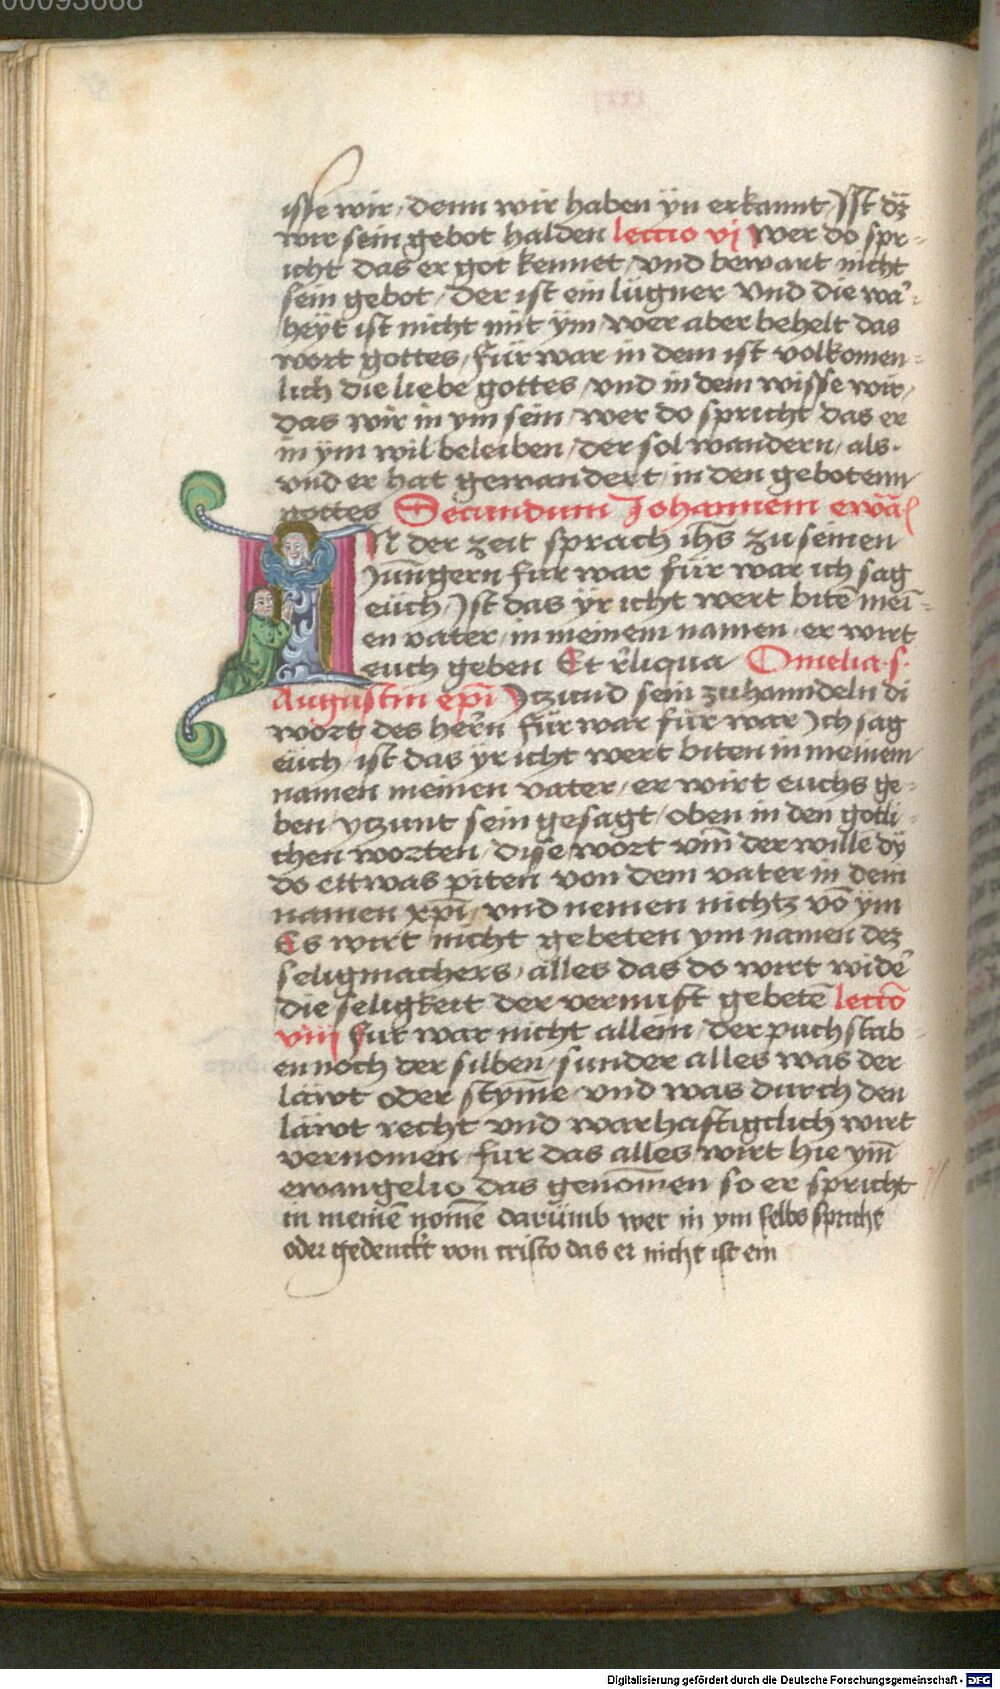 00093668
isse wir / denn wir haben yn erkannt / Ist dz
wir sein gebot halden lectio vj Wer do spr-
icht das er got kennet / vnd bewart nicht
sein gebot / der ist ein lügner vnd die war-
heyt ist nicht mit ÿm / wer aber behelt das
wort gottes / für war in dem ist volkomen-
lich die liebe gottes / vnd in dem wisse wir /
das wir in ym sein / wer do spricht das er
in ÿm wil beleiben / der sol wandern / als
vnd er hat gewandert / in den gebotenn
gottes Secundum Johannem ewā
IN der zeit sprach ihs zu seinen
Jungern fur war für war ich sag
eüch / Ist das ÿr icht wert bitē mei-
en vater / in meinem namen / er wirt
euch geben Et rliqua Omelia s.
Augustin epi Itzund sein zuhanndeln di
wort des hern für war für war Ich sag
eüch ist das yr icht wert biten in meinem
namen meinen vater / er wirt euchs ge-
ben / ytzunt sein gesagt / oben in den gotli-
chen worten / dise wort vm̄ der wille dÿ
do ettwas piten von dem vater in dem
namen xpi / vnd nemen nichtz vō ym
Es wirt nicht gebeten ym namen dez
seligmachers / alles das do wirt wider
die seligkeit der vernuft gebetē lectō
viij fur war nicht allein / der puchstab-
en noch der silben / sunder alles was der
läwt oder stym̄e vnd was durch den
läwt recht vnd warhaftigclich wirt
vernomen / fur das alles wirt hie ym̄
ewangelio das genom̄en so er spricht
in meinē nomē darümb wer in ym selbs spricht
oder gedenckt von cristo das er nicht ist ein
Digitalisierung gefördert durch die Deutsche Forschungsgemeinschaft - DFG